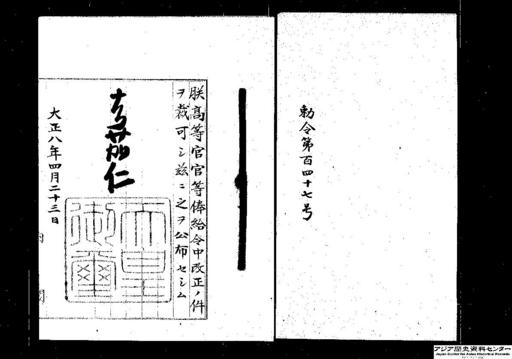 勅令第百四十七号
朕高等官官等俸給令中改正ノ件
ヲ裁可シ茲ニ之ヲ公布セシム
嘉仁
天皇御璽
大正八年四月二十三日
アジア歴史資料センター
Japan Center for Asian Historical Records